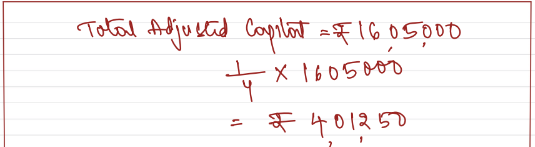 Total Adjusted Capital = ₹ 16,05,000
1/4 × 1605000
= ₹ 4,01,250